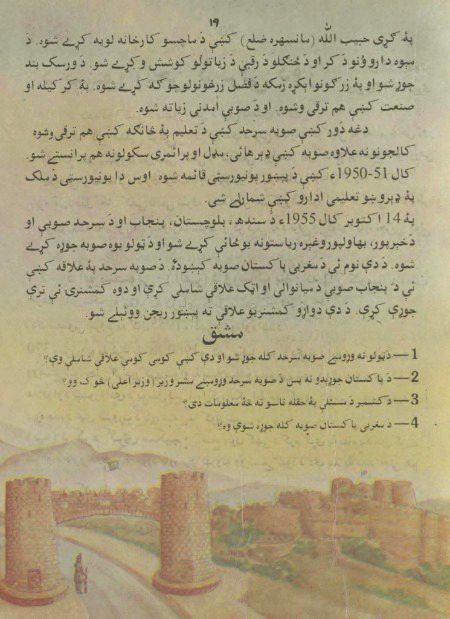 ۱۹
پۀ ګړی حبیب الله (مانسهره ضلع) کښې د ماچسو کارخانه لویه کړے شوه. د
میوه دارو ؤنو د کر او د ځنګلو د رقبې د زیاتولو کوشش وکړے شو. د ورسک بند
جوړ شو او پۀ زرګونو ایکړه زمکه د فصل زرغونولو جوګه کړے شوه. پۀ کر کیله او
صنعت کښې هم ترقی وشوه. او د صوبې آمدنی زیاته شوه.
دغه دَور کښې صوبه سرحد کښې د تعلیم پۀ څانګه کښې هم ترقی وشوه
کالجونو نه علاوه صوبه کښې ډېر هائی، مډل او پرائمری سکولونه هم پرانستے شو.
کال 51-1950ء کښې د پېښور یونیورسټی قائمه شوه. اوس دا یونیورسټی د ملک
پۀ ډېرو ښو تعلیمی ادارو کښې شمارلے شی.
پۀ 14 اکتوبر کال 1955ء د سندھ، بلوچستان، پنجاب او د سرحد صوبې او
د خیرپور، بهاولپور وغیره ریاستونه یو ځائی کړے شو او د ټولو یوه صوبه جوړه کړے
شوه. د دې نوم ئې د مغربی پاکستان صوبه کېښودۀ. د صوبه سرحد پۀ علاقه کښې
ئې د پنجاب صوبې د میانوالی او اټک علاقې شاملې کړې او دوه کمشنرئ ئې ترې
جوړې کړې. د دې دواړو کمشنریو علاقې ته پېښور ریجن ووئیلے شو.
مشق
1— د ټولو نه وړومبے صوبه سرحد کله جوړ شو او دې کښې کومې کومې علاقې شاملې وې؟
2— د پاکستان جوړېدو نه پس د صوبه سرحد وړومبے مشر وزیر (وزیر اعلی) څوک وو؟
3— د کشمیر د مسئلې پۀ حقله تاسو ته څۀ معلومات دی؟
4— د مغربی پاکستان صوبه کله جوړه شوې وه؟